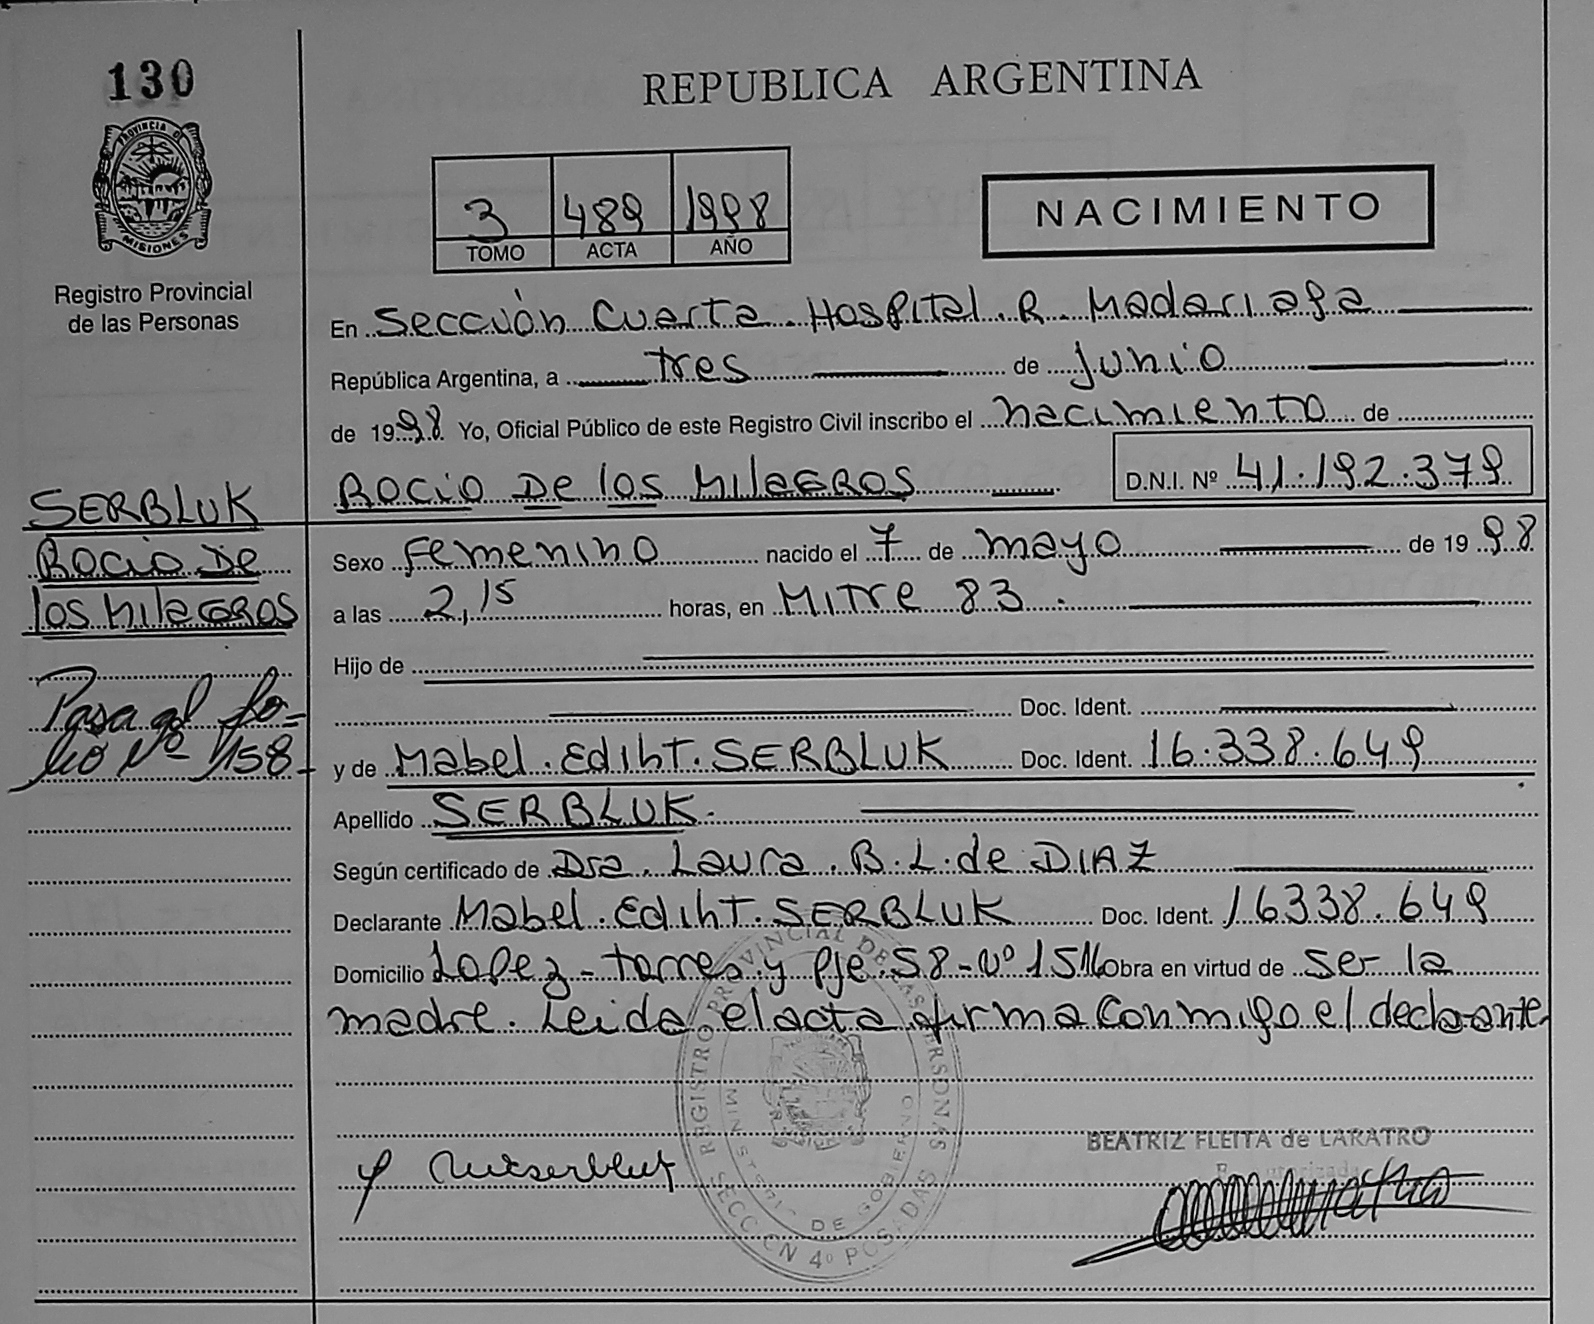 130
REPUBLICA ARGENTINA
PROVINCIA DE
MISIONES
3 489 1998
TOMO ACTA AÑO
NACIMIENTO
Registro Provincial
de las Personas
En Sección Cuarta Hospital R. Madariaga
República Argentina, a tres de junio
de 1998 Yo, Oficial Público de este Registro Civil inscribo el nacimiento de
ROCIO De los MILAGROS D.N.I. Nº 41.192.379
SERBLUK
ROCIO De
los MILAGROS
Sexo Femenino nacido el 7 de mayo de 1998
a las 2,15 horas, en MITre 83.
Hijo de
Doc. Ident.
Pasa al fo=
lio Nº 158
y de Mabel. Ediht. SERBLUK Doc. Ident. 16.338.649
Apellido SERBLUK.
Según certificado de Dra. Laura. B. L. de DIAZ
Declarante Mabel. Ediht. SERBLUK Doc. Ident. 16338.649
Domicilio Lopez - torres y Pje. 58 - Nº 1516 obra en virtud de ser la
madre. Leida el acta firma conmigo el declarante
REGISTRO PROVINCIAL DE LAS PERSONAS
MINISTERIO DE GOBIERNO
SECCION 4º POSADAS
BEATRIZ FLEITA de LARATRO